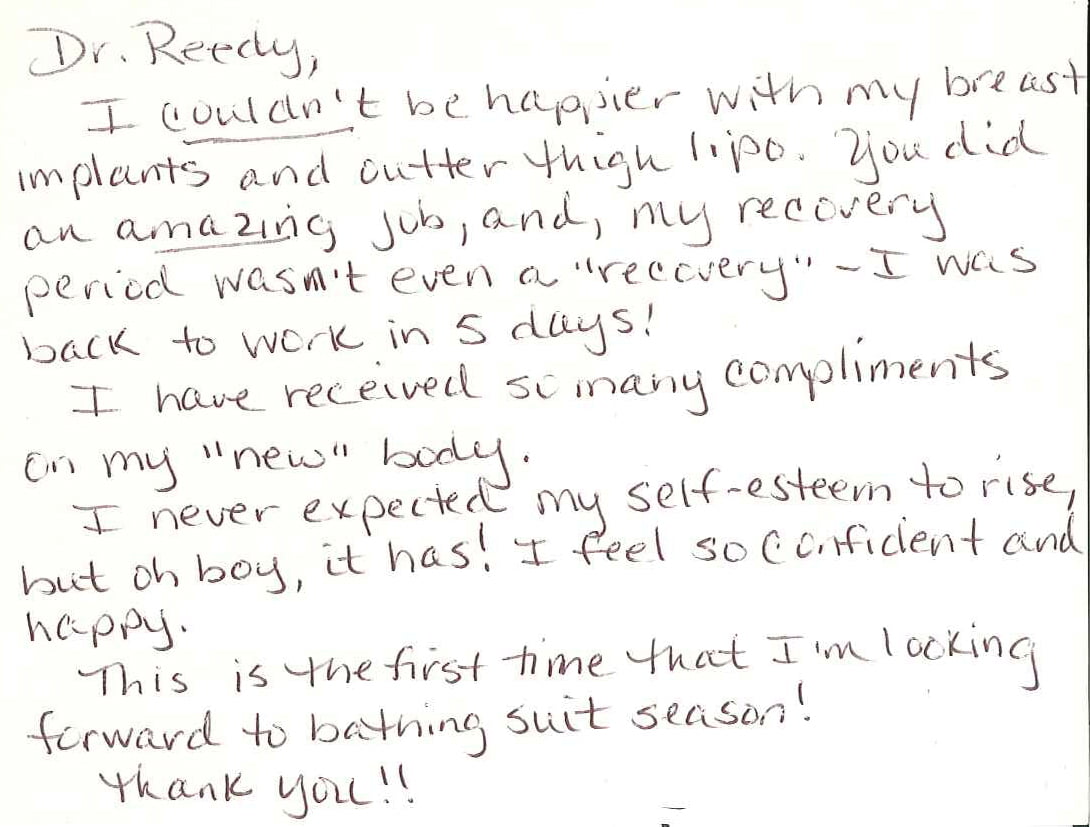 Dr. Reedy,
I couldn't be happier with my breast
implants and outter thigh lipo. You did
an amazing job, and, my recovery
period wasn't even a "recovery" - I was
back to work in 5 days!
I have received so many compliments
on my "new" body.
I never expected my self-esteem to rise,
but oh boy, it has! I feel so confident and
happy.
This is the first time that I'm looking
forward to bathing suit season!
Thank you!!